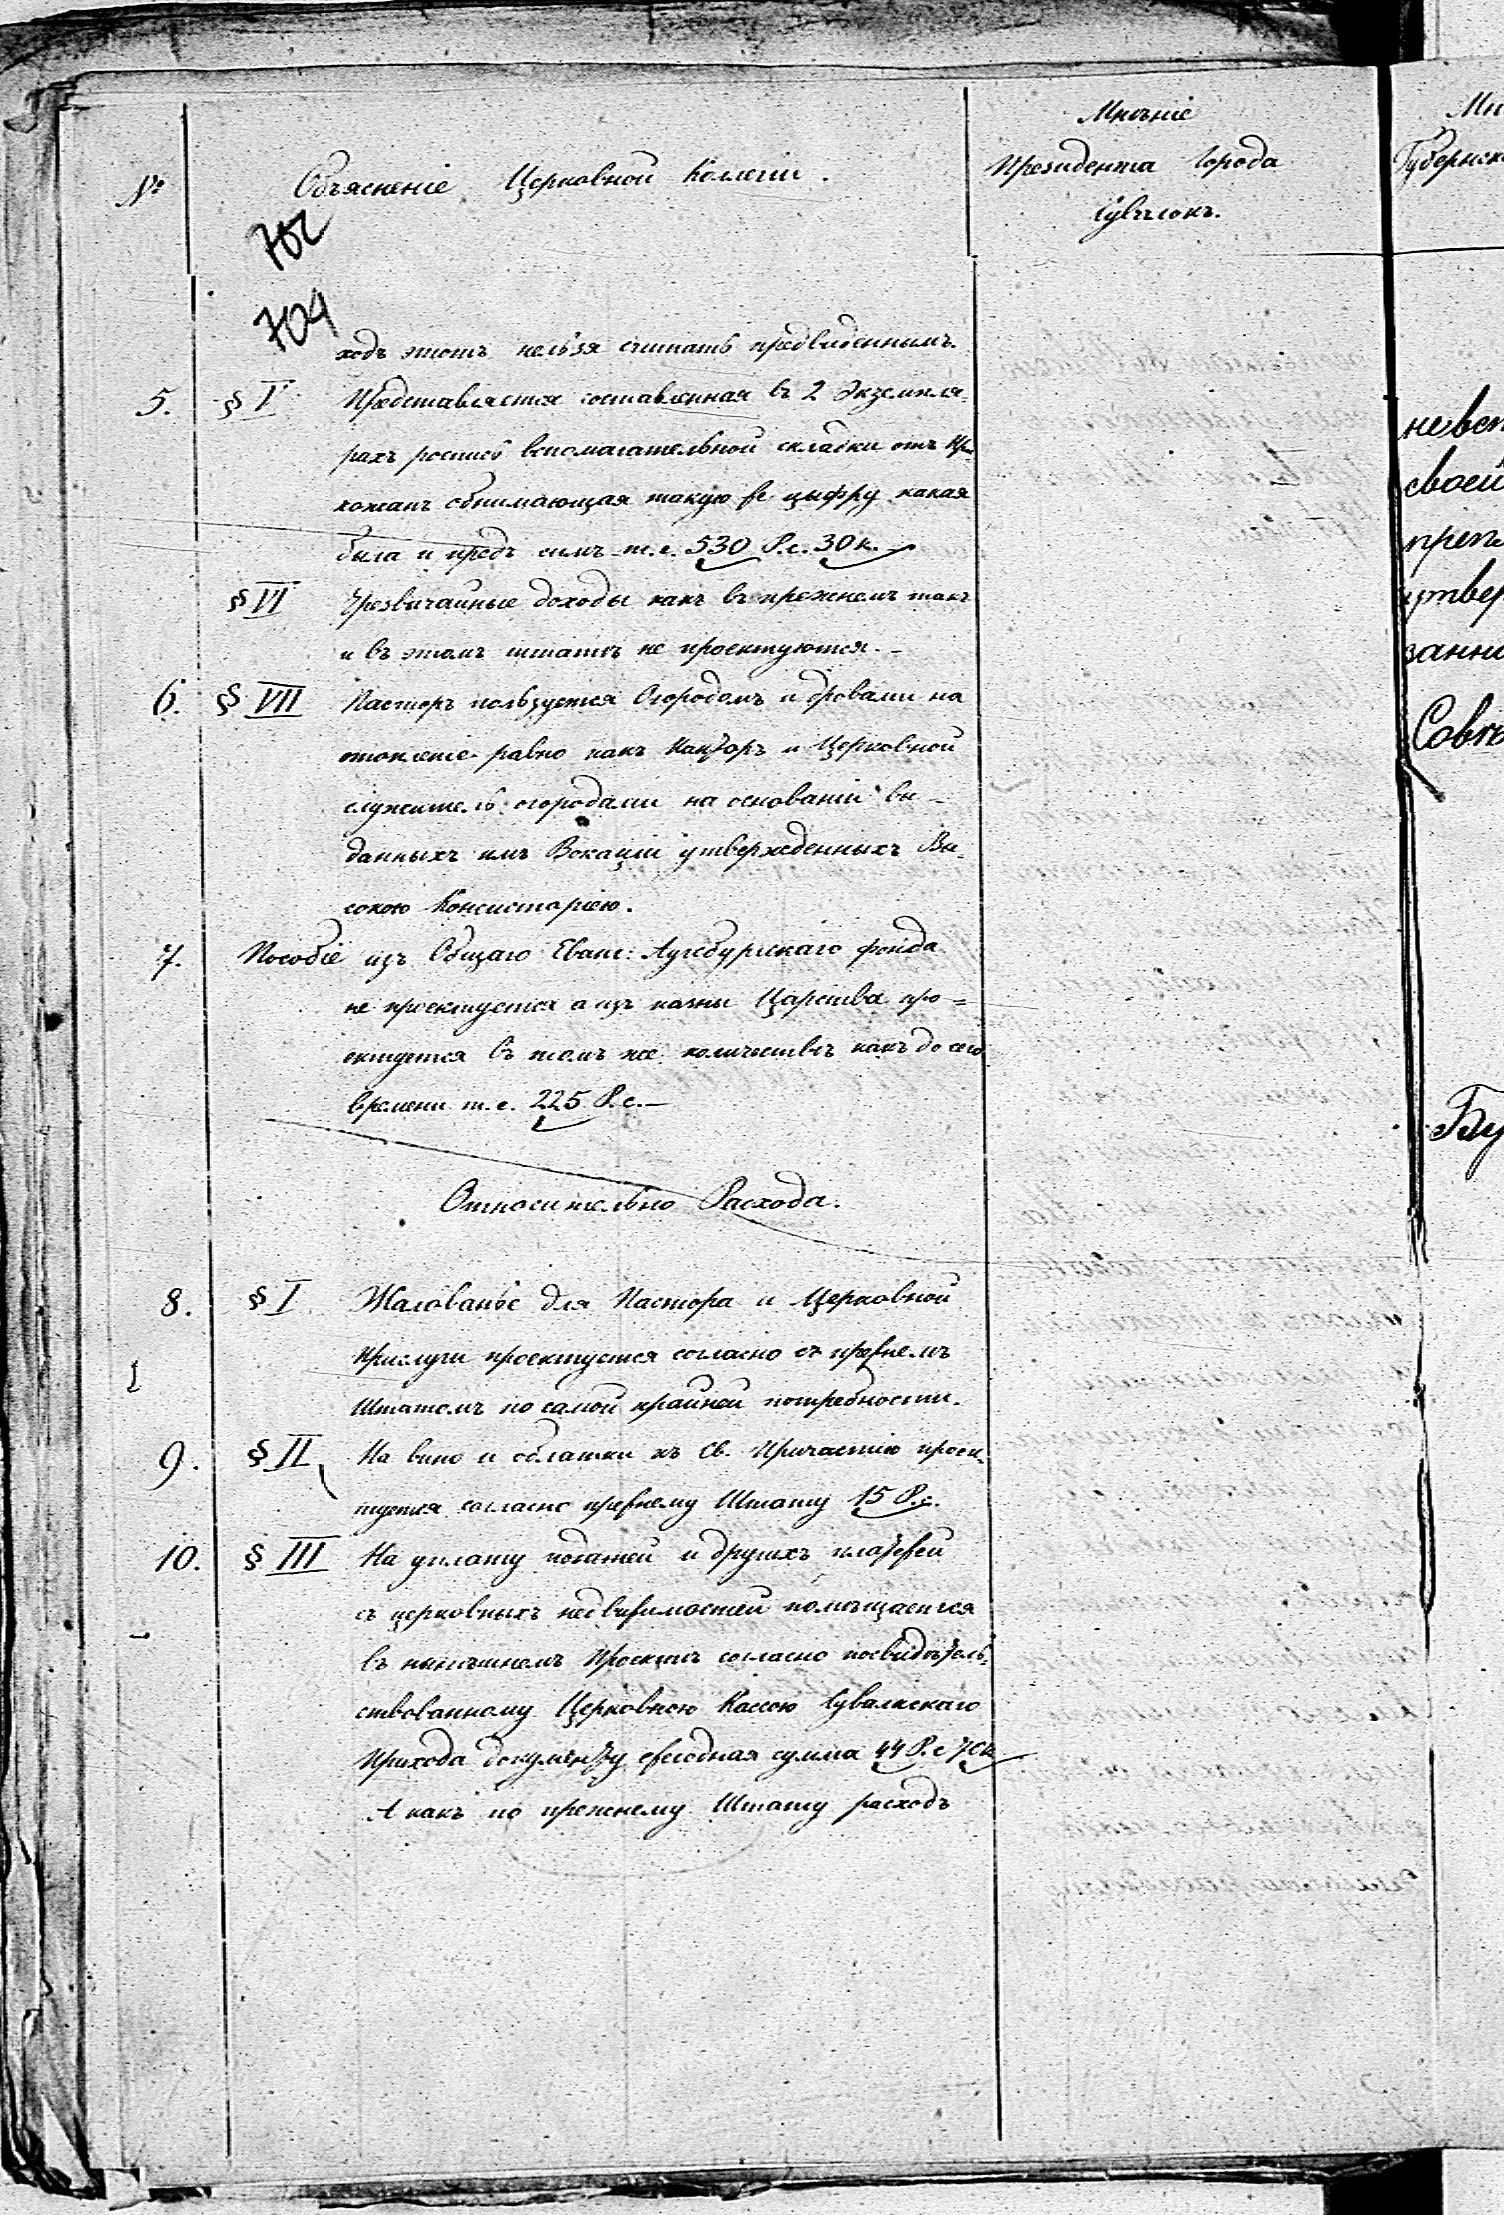 Мнѣніе
Президента Города
Сувалокъ.
№ Объясненіе Церковной Колегіи.
702
704
ходъ этотъ нельзя считать предвиденнимъ.
5. § V Представляется составленная въ 2 Экземпля-
рахъ роспись вспомагательной складки отъ При
хожанъ обнимающая такую же цыфру какая
била и предъ симъ т.е. 530 Р.с. 30 к.
§ VI Чрезвичайные доходы какъ въ прежнемъ такъ
и въ этомъ штатѣ не проектуются.
6. § VII Пасторъ пользуется Огородомъ и дровами на
отопленіе равно какъ Канторъ и Церковной
служитель огородами на основаніи ви-
данныхъ имъ Вокаціи утвержденныхъ Ви-
сокою Консисторіею.
7. Пособіе изъ Общаго Еванг: Аугсбургскаго фонда
не проектуется а изъ казны Царства про-
ектуется въ томъ же количествѣ какъ до сего
времени т.е. 225 Р.с.
Относительно Расхода.
8. § I Жалованье для Пастора и Церковной
Прислуги проектуется согласно съ прежнемъ
Штатомъ по самой крайней потребности.
9. § II На вино и облатки къ Св. Причастію проек-
туется согласно прежнему Штату 15 Р.с.
10. § III На уплату податей и другихъ платежей
съ церковныхъ недвижимостей помѣщается
въ нинѣшнемъ Проектѣ согласно посвидѣтель-
ствованному Церковною Кассою Сувалкскаго
Прихода документу ежегодная сумма 44 Р.с 70 к
А какъ по прежнему Штату расходъ
Губернск
невст
своей
препя
утвер
занни
Совѣ
Бу